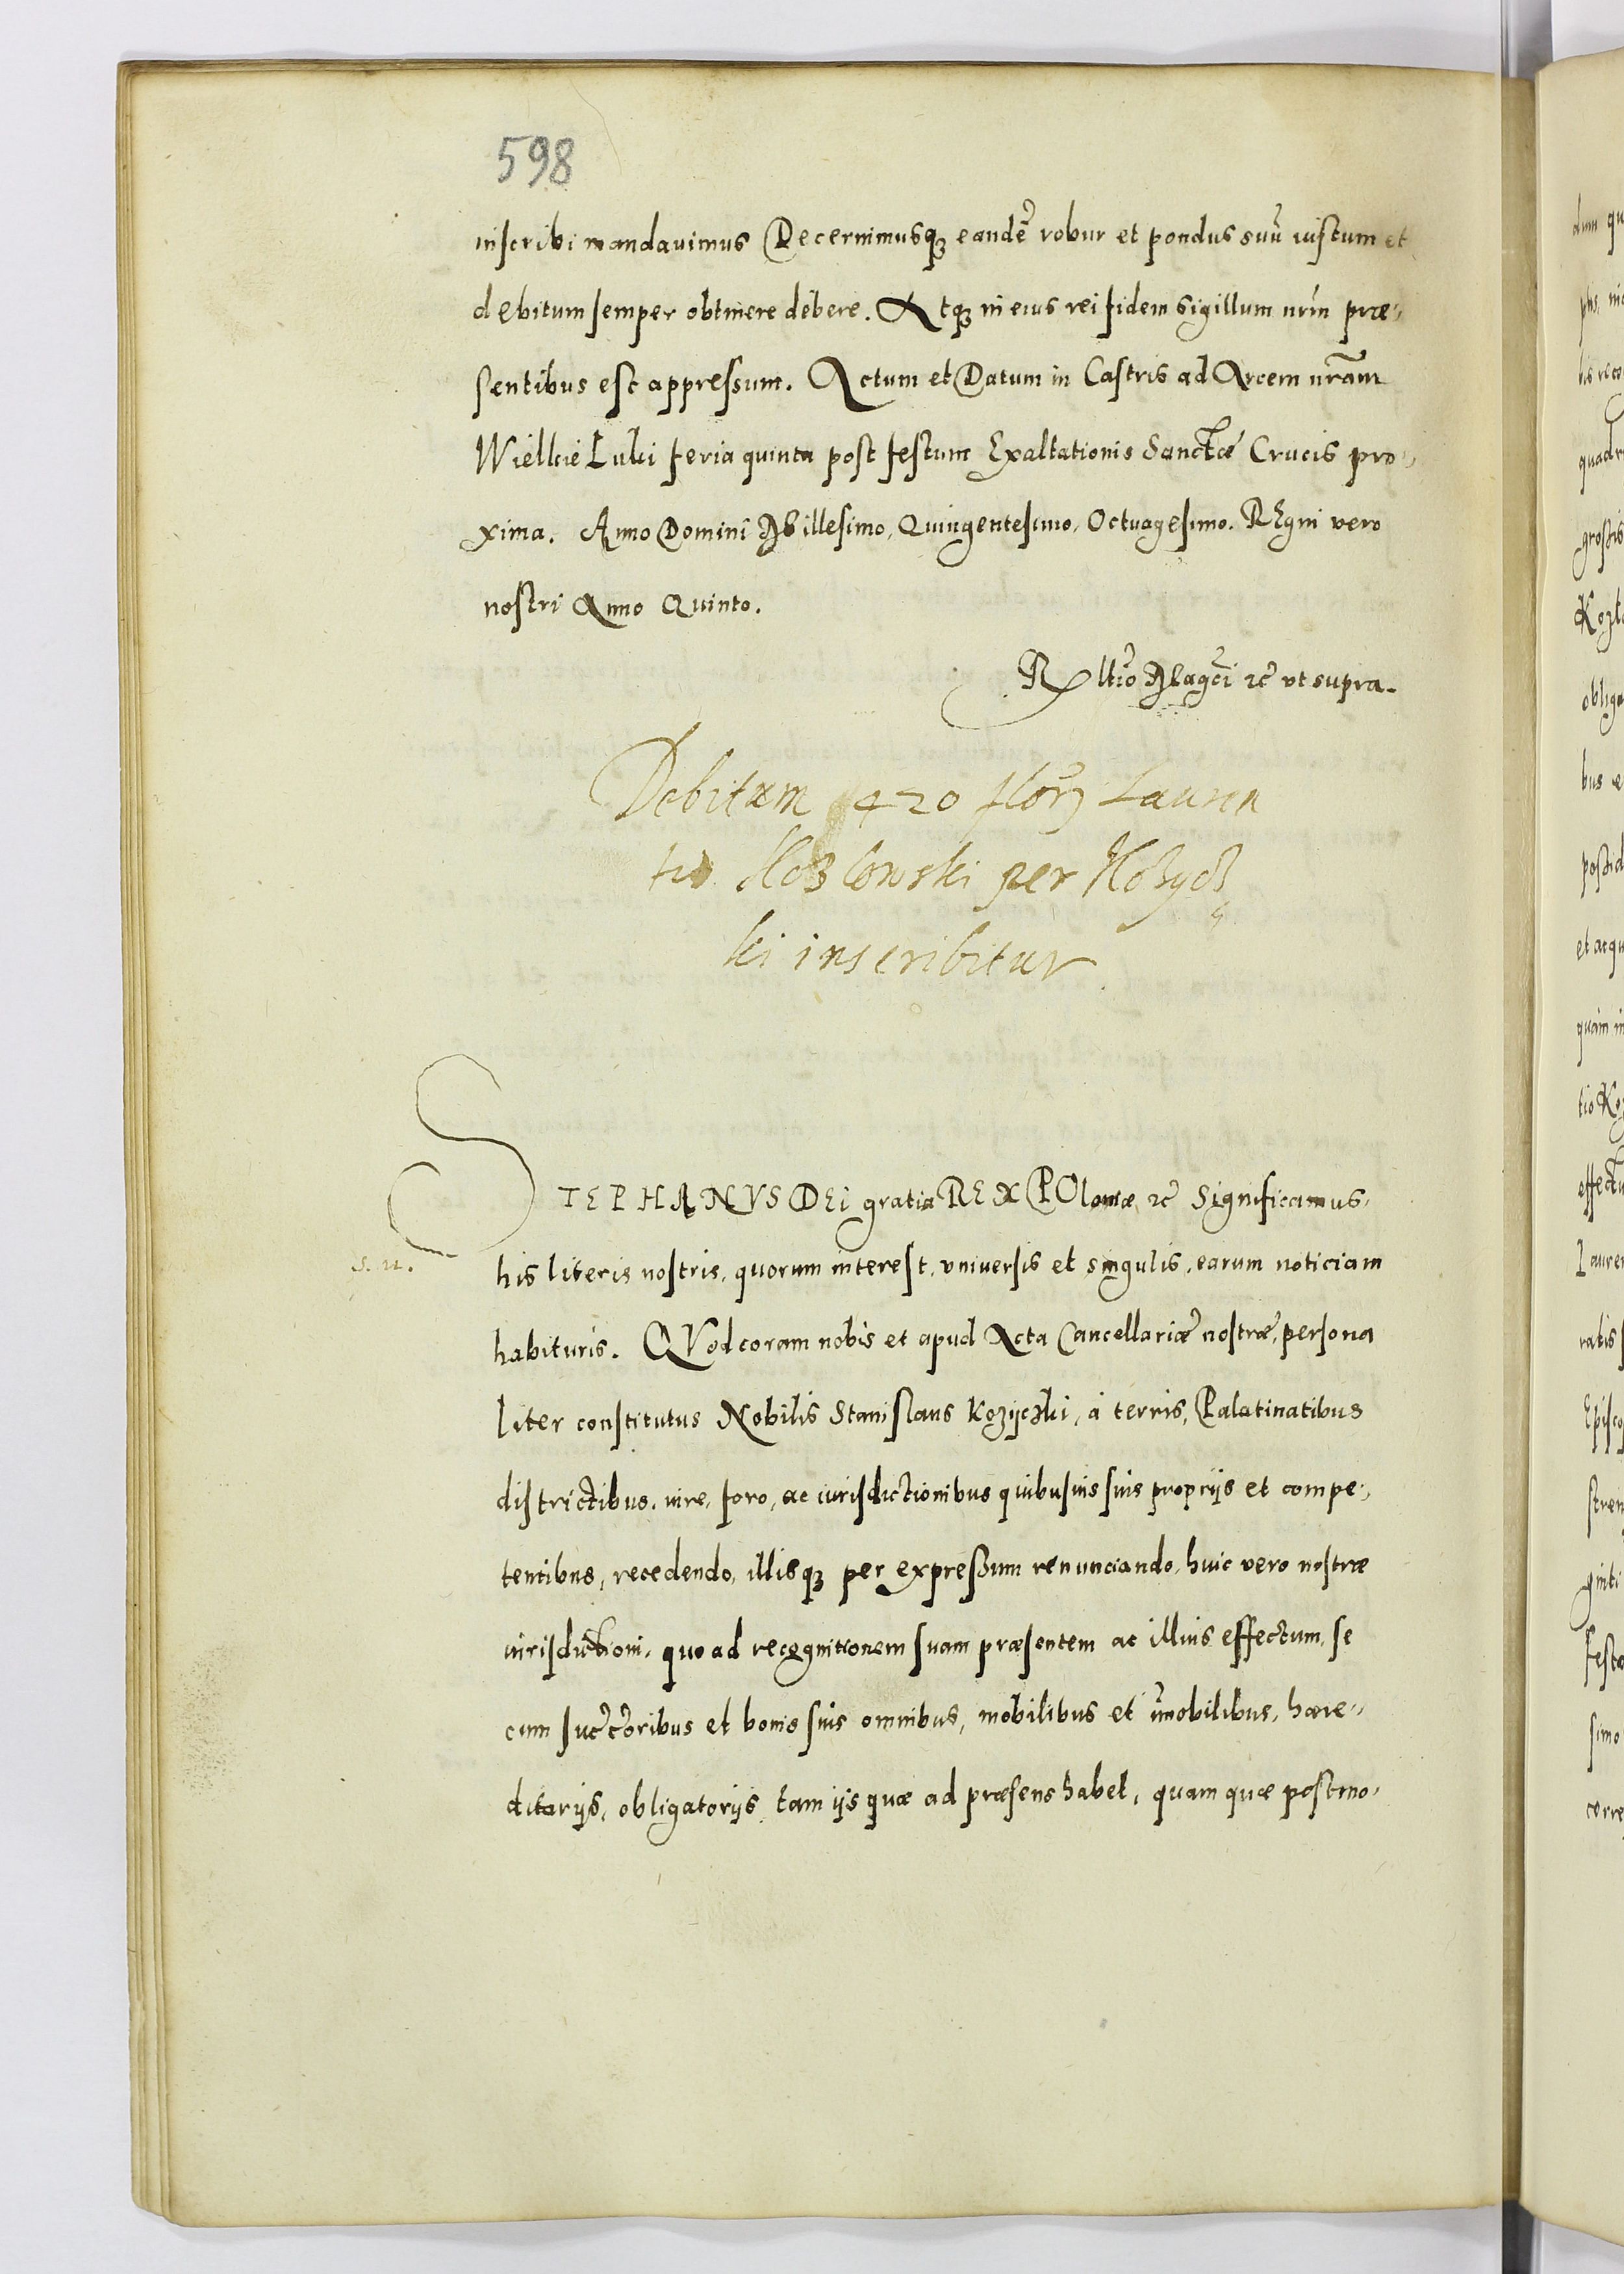 598
inscribi mandauimus Decernimusqꝫ eandẽ robur et pondus suũ iustum et
debitum semper obtinere debere. Atqꝫ in eius rei fidem sigillum nr̃m præ-
sentibus est appressum. Actum et Datum in Castris ad Arcem nr̃am
Wielkie Luki feria quinta post festum Exaltationis Sanctæ Crucis pro-
xima. Anno Domini Millesimo, Quingentesimo, Octuagesimo. REgni vero
nostri Anno Quinto.
Rltio Magci ꝛc̃ vt supra.
Debitum 420 flor Lauren
tio Kozlowski per Kozycz
ki inscribitur
STEPHANVS DEi gratia REX POloniæ ꝛc̃ Significamus
his literis nostris, quorum interest, vniuersis et singulis, earum noticiam
s. n.
habituris. QVod coram nobis et apud Acta Cancellariæ nostræ, persona
liter constitutus Nobilis Stanislaus Kozyczki, à terris, Palatinatibus
districtibus, iure, foro, ac iurisdictionibus quibusuis suis proprijs et compe-
tentibus, recedendo, illisqꝫ per expressum renunciando, huic vero nostræ
iurisdictioni, quo ad recognitionem suam præsentem ac illius effectum, se
cum succ̃oribus et bonis suis omnibus, mobilibus et im̃obilibus, hære-
ditarijs, obligatorijs tam ijs quæ ad præsens habet, quam quæ postmo-